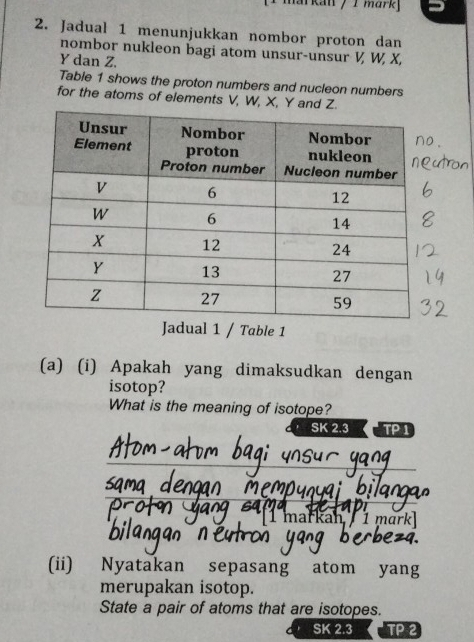 [1 markah / 1 mark]
2. Jadual 1 menunjukkan nombor proton dan
nombor nukleon bagi atom unsur-unsur V, W, X,
Y dan Z.
Table 1 shows the proton numbers and nucleon numbers
for the atoms of elements V, W, X, Y and Z.
Unsur Element Nombor proton Proton number Nombor nukleon Nucleon number no. neutron
V 6 12 6
W 6 14 8
X 12 24 12
Y 13 27 14
Z 27 59 32
Jadual 1 / Table 1
(a) (i) Apakah yang dimaksudkan dengan
isotop?
What is the meaning of isotope?
SK 2.3 TP 1
Atom-atom bagi unsur yang
sama dengan mempunyai bilangan
proton yang sama tetapi
[1 markah / 1 mark]
bilangan neutron yang berbeza.
(ii) Nyatakan sepasang atom yang
merupakan isotop.
State a pair of atoms that are isotopes.
SK 2.3 TP 2